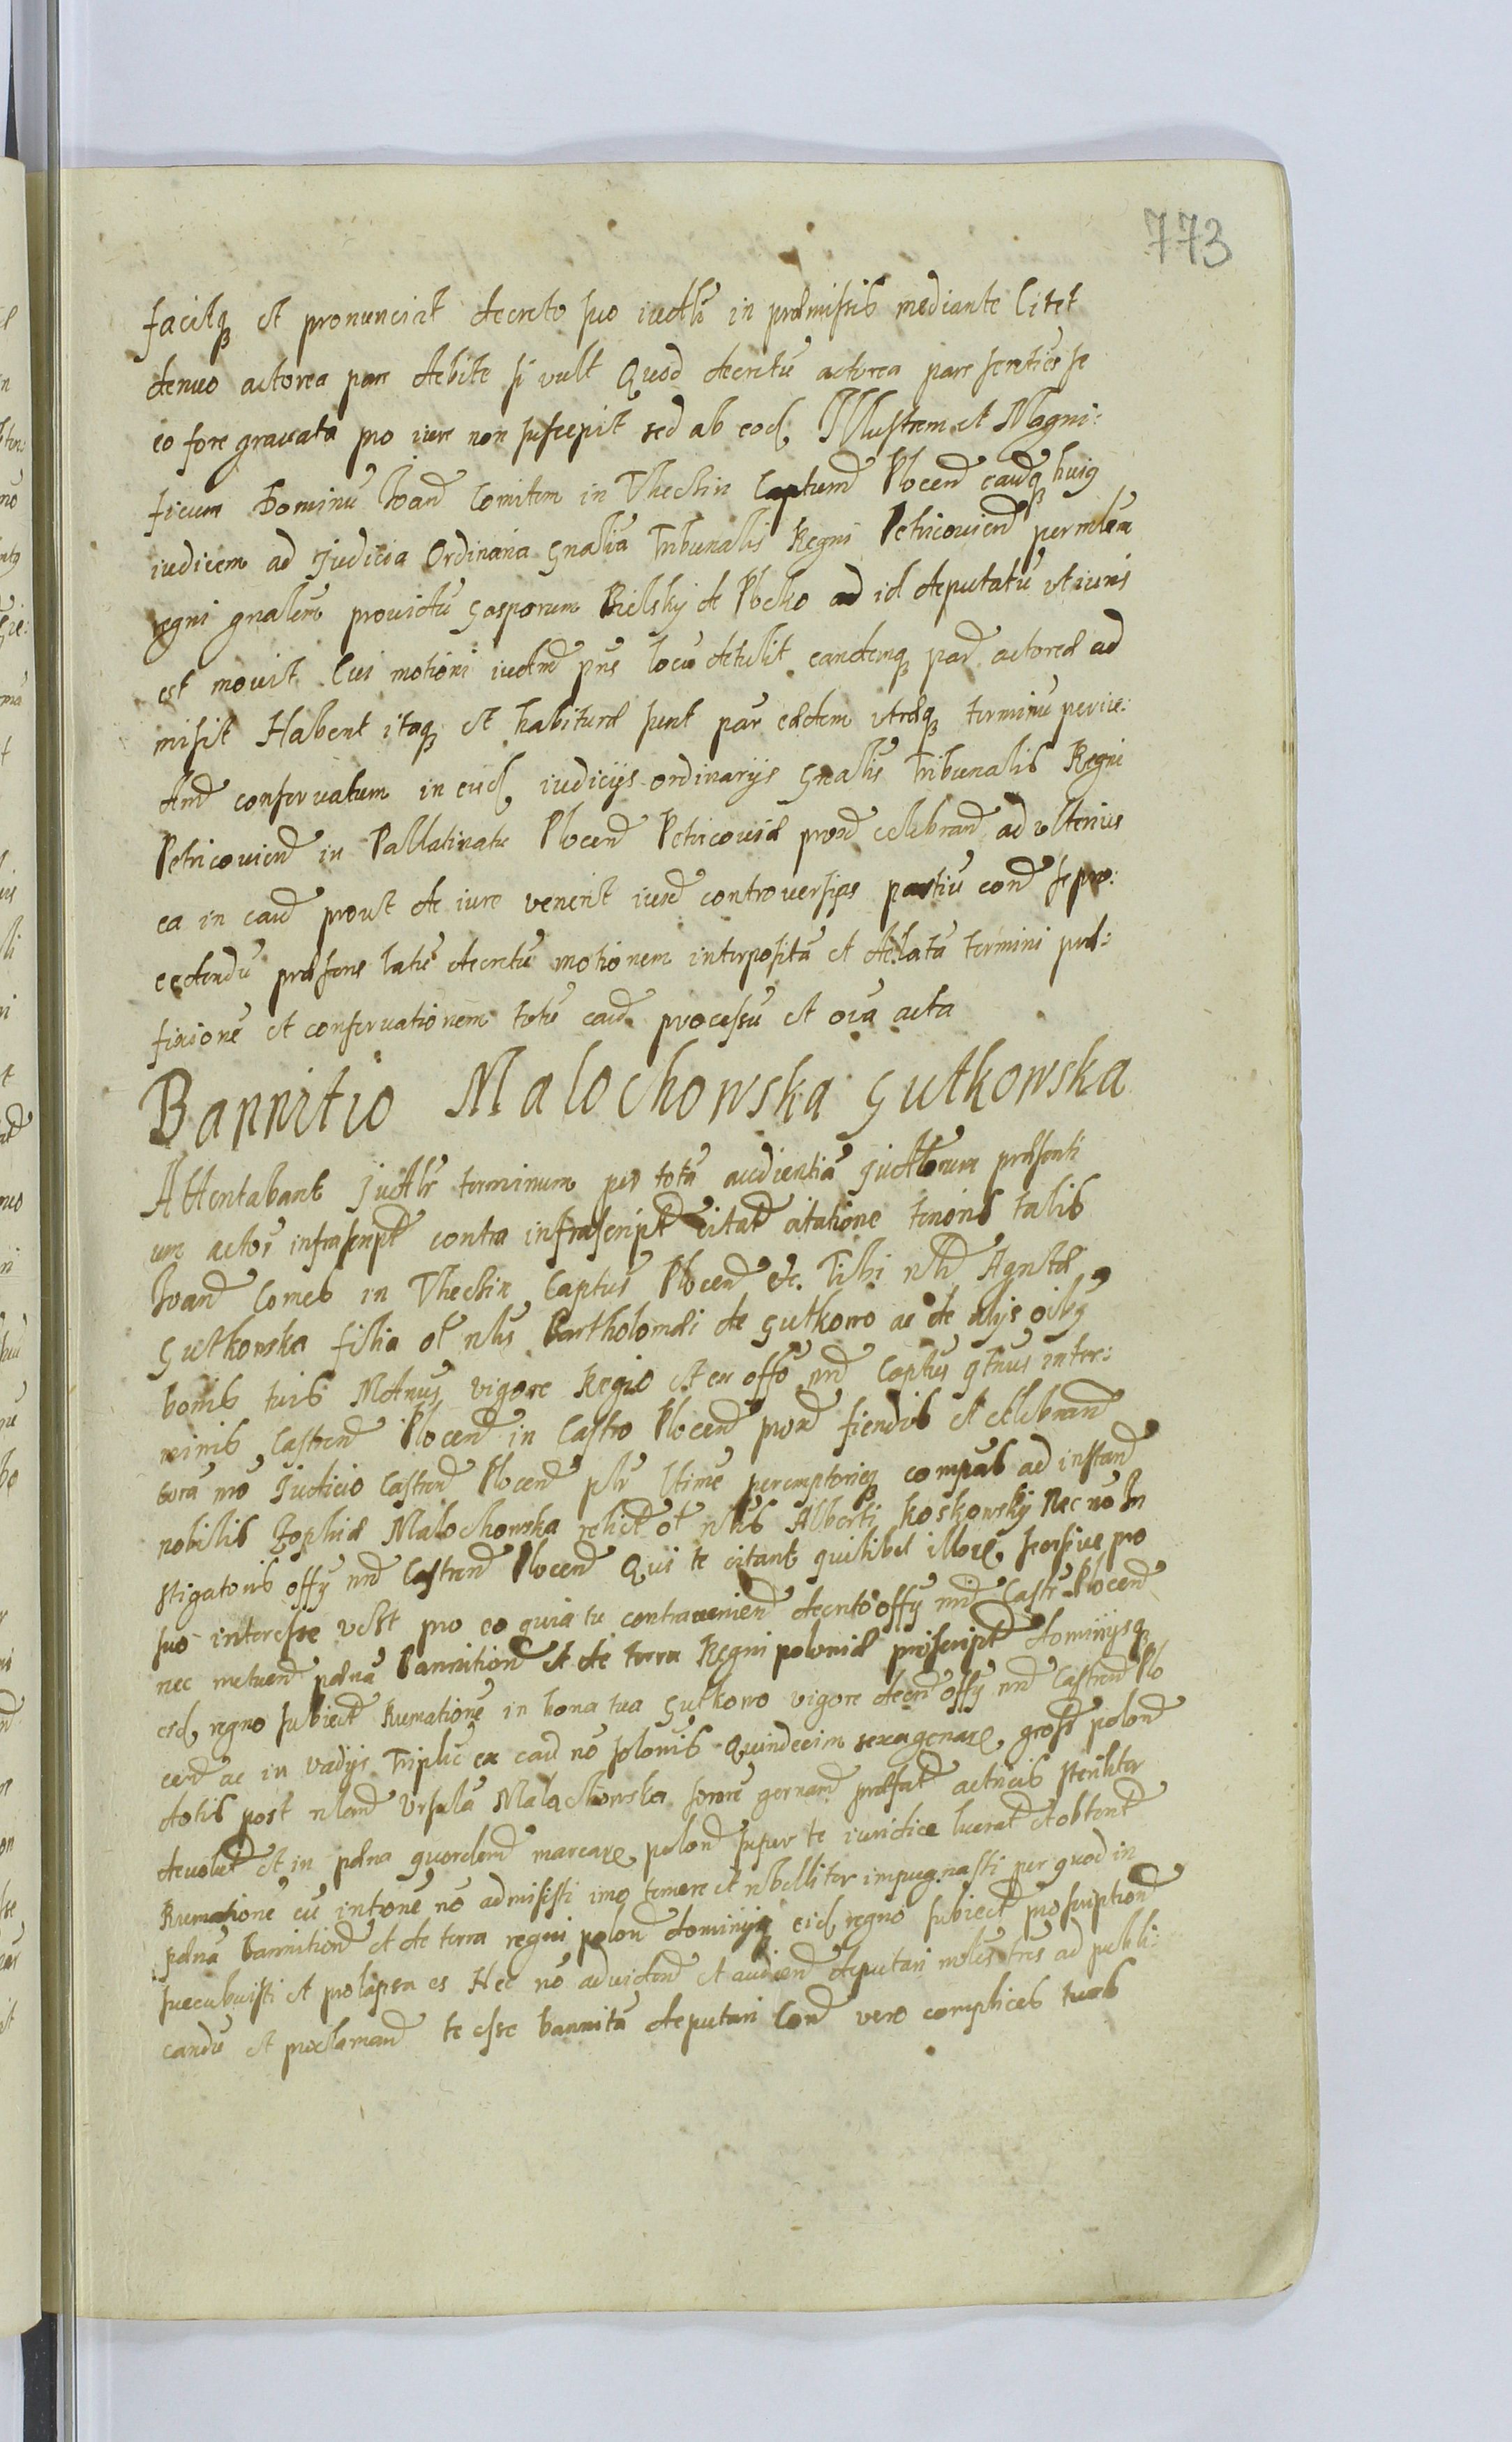 773
facitq et pronunciat decreto suo iudtli in præmissis mediante Citet
denuo actorea pars debite si vult Quod decretū actorea pars sentiēs se
eo fore gravata pro iure non suscepit sed ab eod Illustrem et Magni:
ficum Dominū Joanē Comitem in Thechin Captum Plocen causæq huiq
iudicem ad Judicia Ordinaria Gnalia Tribunalis Regni Petricovien per mltem
regni gnalem provictū Gasparum Bielsky de Plocko ad id deputatū ut iuris
est movit Cui motioni iudm pns locū detulit eandemq par actoreæ ad
misit Habent itaq et habituræ sunt par eædem utræq terminū periu:
dm conservatum in eisd iudicijs ordinarijs Gnalis Tribunalis Regni
Petricovien in Pallatinatu Plocen Petricoviæ prox celebran ad ulterius
ea in causa prout de iure venerit iuxta controversias partiū cond se pro:
cedendū præsens latū decretū motionem interpositā et delatā termini præ:
fixionē et conservationem totū causæ processū et oīa acta
Bannitio Malochowska Gutkowska
Attentabant Judlr terminum per totā audientiā Judtlorum præsenti
um actor infrascript contra infrascript citat citatione tenoris talis
Joan Comes in Thechin Captus Plocen etc. Tibi nbli Agnetæ
Gutkowska filia ol nblis Bartholomæi de Gutkowo ac de alijs oibq
bonis tuis Mdmus vigore Regio et ex offo nro Captus qtnus inter:
minis Castren Plocen in Castro Plocen prox fiendis et celebran
cora nro Judicio Castren Plocen plr ltime peremptorieq compas ad instan
nobilis Zophiæ Malochowska relict ol nblis Alberti Koskowsky Nec nō In
stigatoris offy nri Castren Plocen Qui te citant quilibet illorū seorsive pro
suo interesse vest pro eo quia tu contravenien decreto offy nri Castr Plocen
nec metuen pœnā Bannition et de terra Regni poloniæ proscript dominijsq
eid regno subiect Rumationē in bona tua Gutkowo vigore decri offy nri Castren Plo
cen ac in vadijs Triplic ex causa nō solonis Quindecim sexagenarū gross polon
dotis post nblem Ursulā Malachowska sororē german præfat actricis steriliter
devolut et in pœna quordecim marcarū polon super te iuridice lucrat et obtent
Rumationē eū intronē nō admisisti imo temere et rebelliter impugnasti per quod in
pœnā bannition et de terra regni polon dominijsq eid regno subiect proscription
succubuisti et prolapsa es Nec nō ad viden et audien deputari mltis tres ad publi:
candū et proclaman te esse bannitā deputari Con vero complices tuos